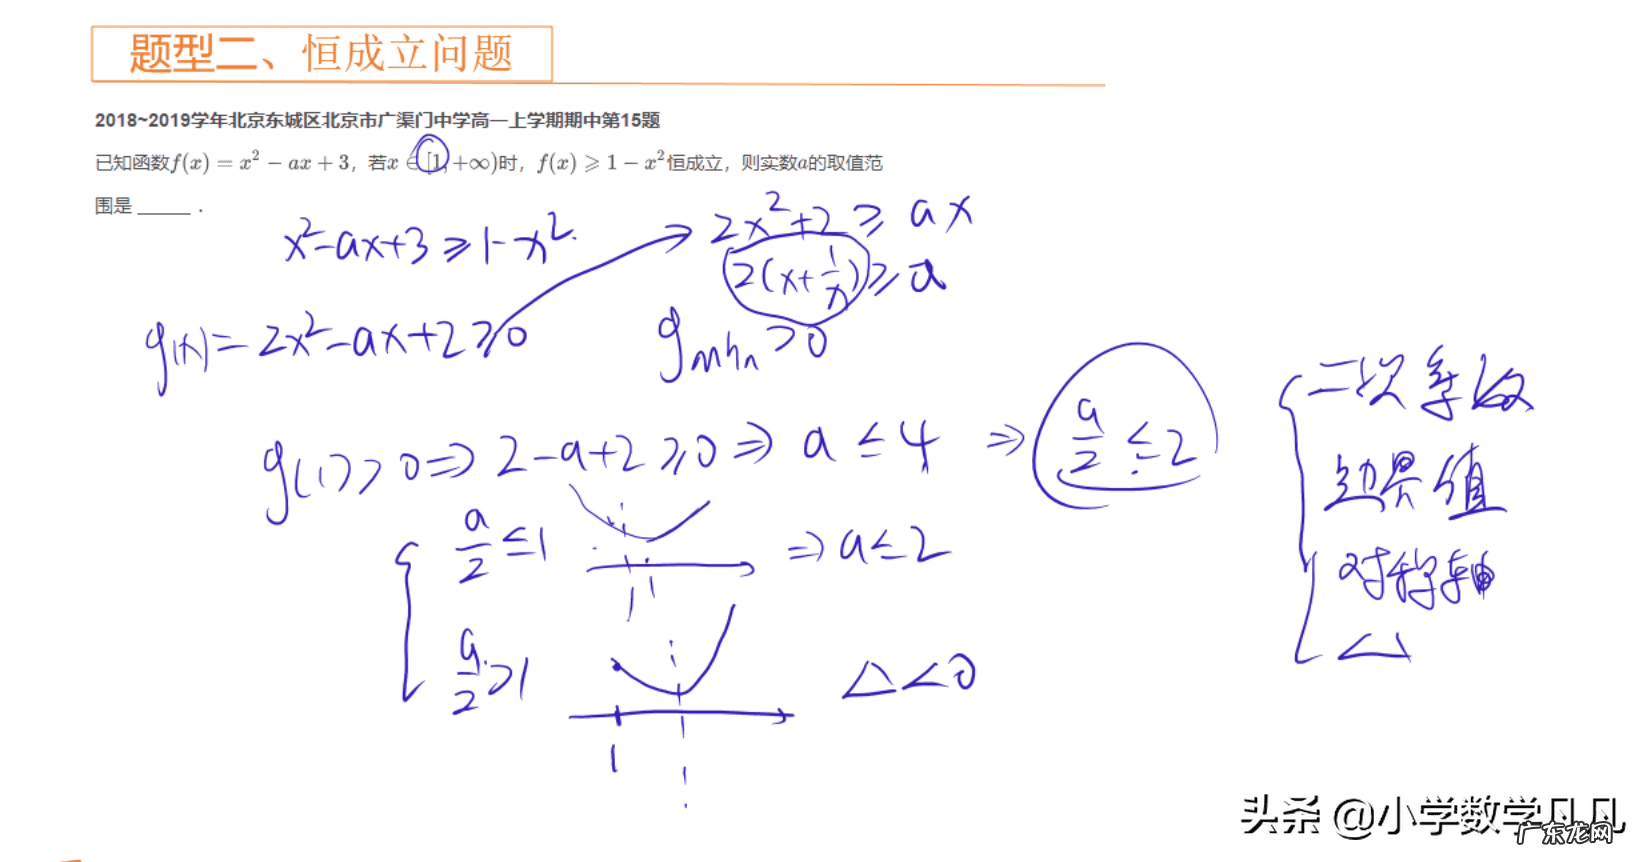 题型二、恒成立问题
2018~2019学年北京东城区北京市广渠门中学高一上学期期中第15题
已知函数f(x) = x² − ax + 3，若x ∈ [1, +∞)时，f(x) ⩾ 1 − x²恒成立，则实数a的取值范
围是 _____ .
x²-ax+3≥1-x²
2x²+2≥ax
2(x+1/x)≥a
g(x)=2x²-ax+2≥0
gmin>0
g(1)>0⇒2-a+2≥0⇒a≤4⇒a/2≤2
a/2≤1
1
⇒a≤2
a/2>1
1
△<0
二次系数
边界值
对称轴
△
头条 @小学数学凡凡
广东龙网